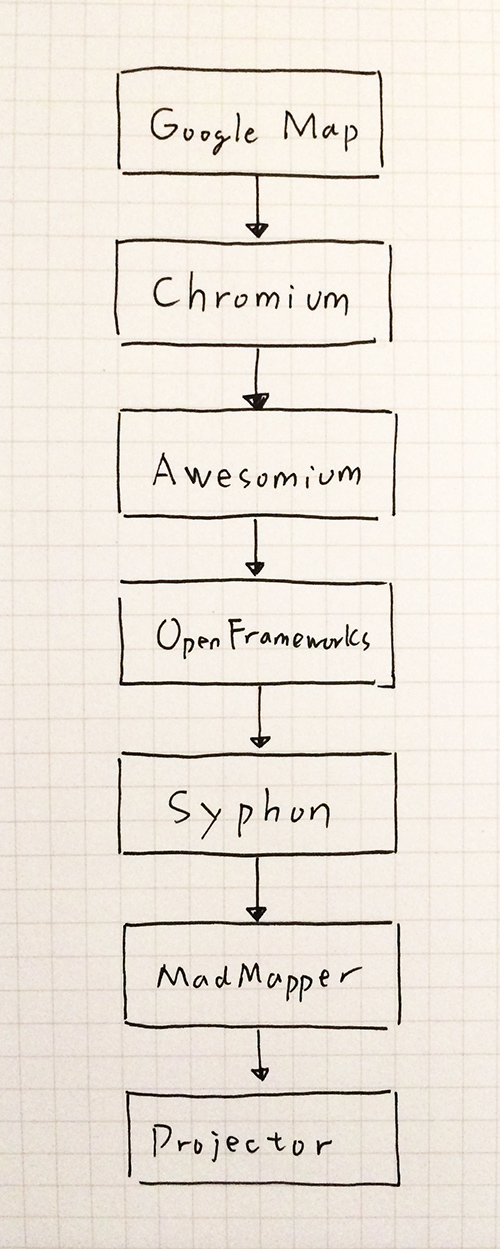 Google Map
Chromium
Awesomium
OpenFrameworks
Syphon
MadMapper
Projector